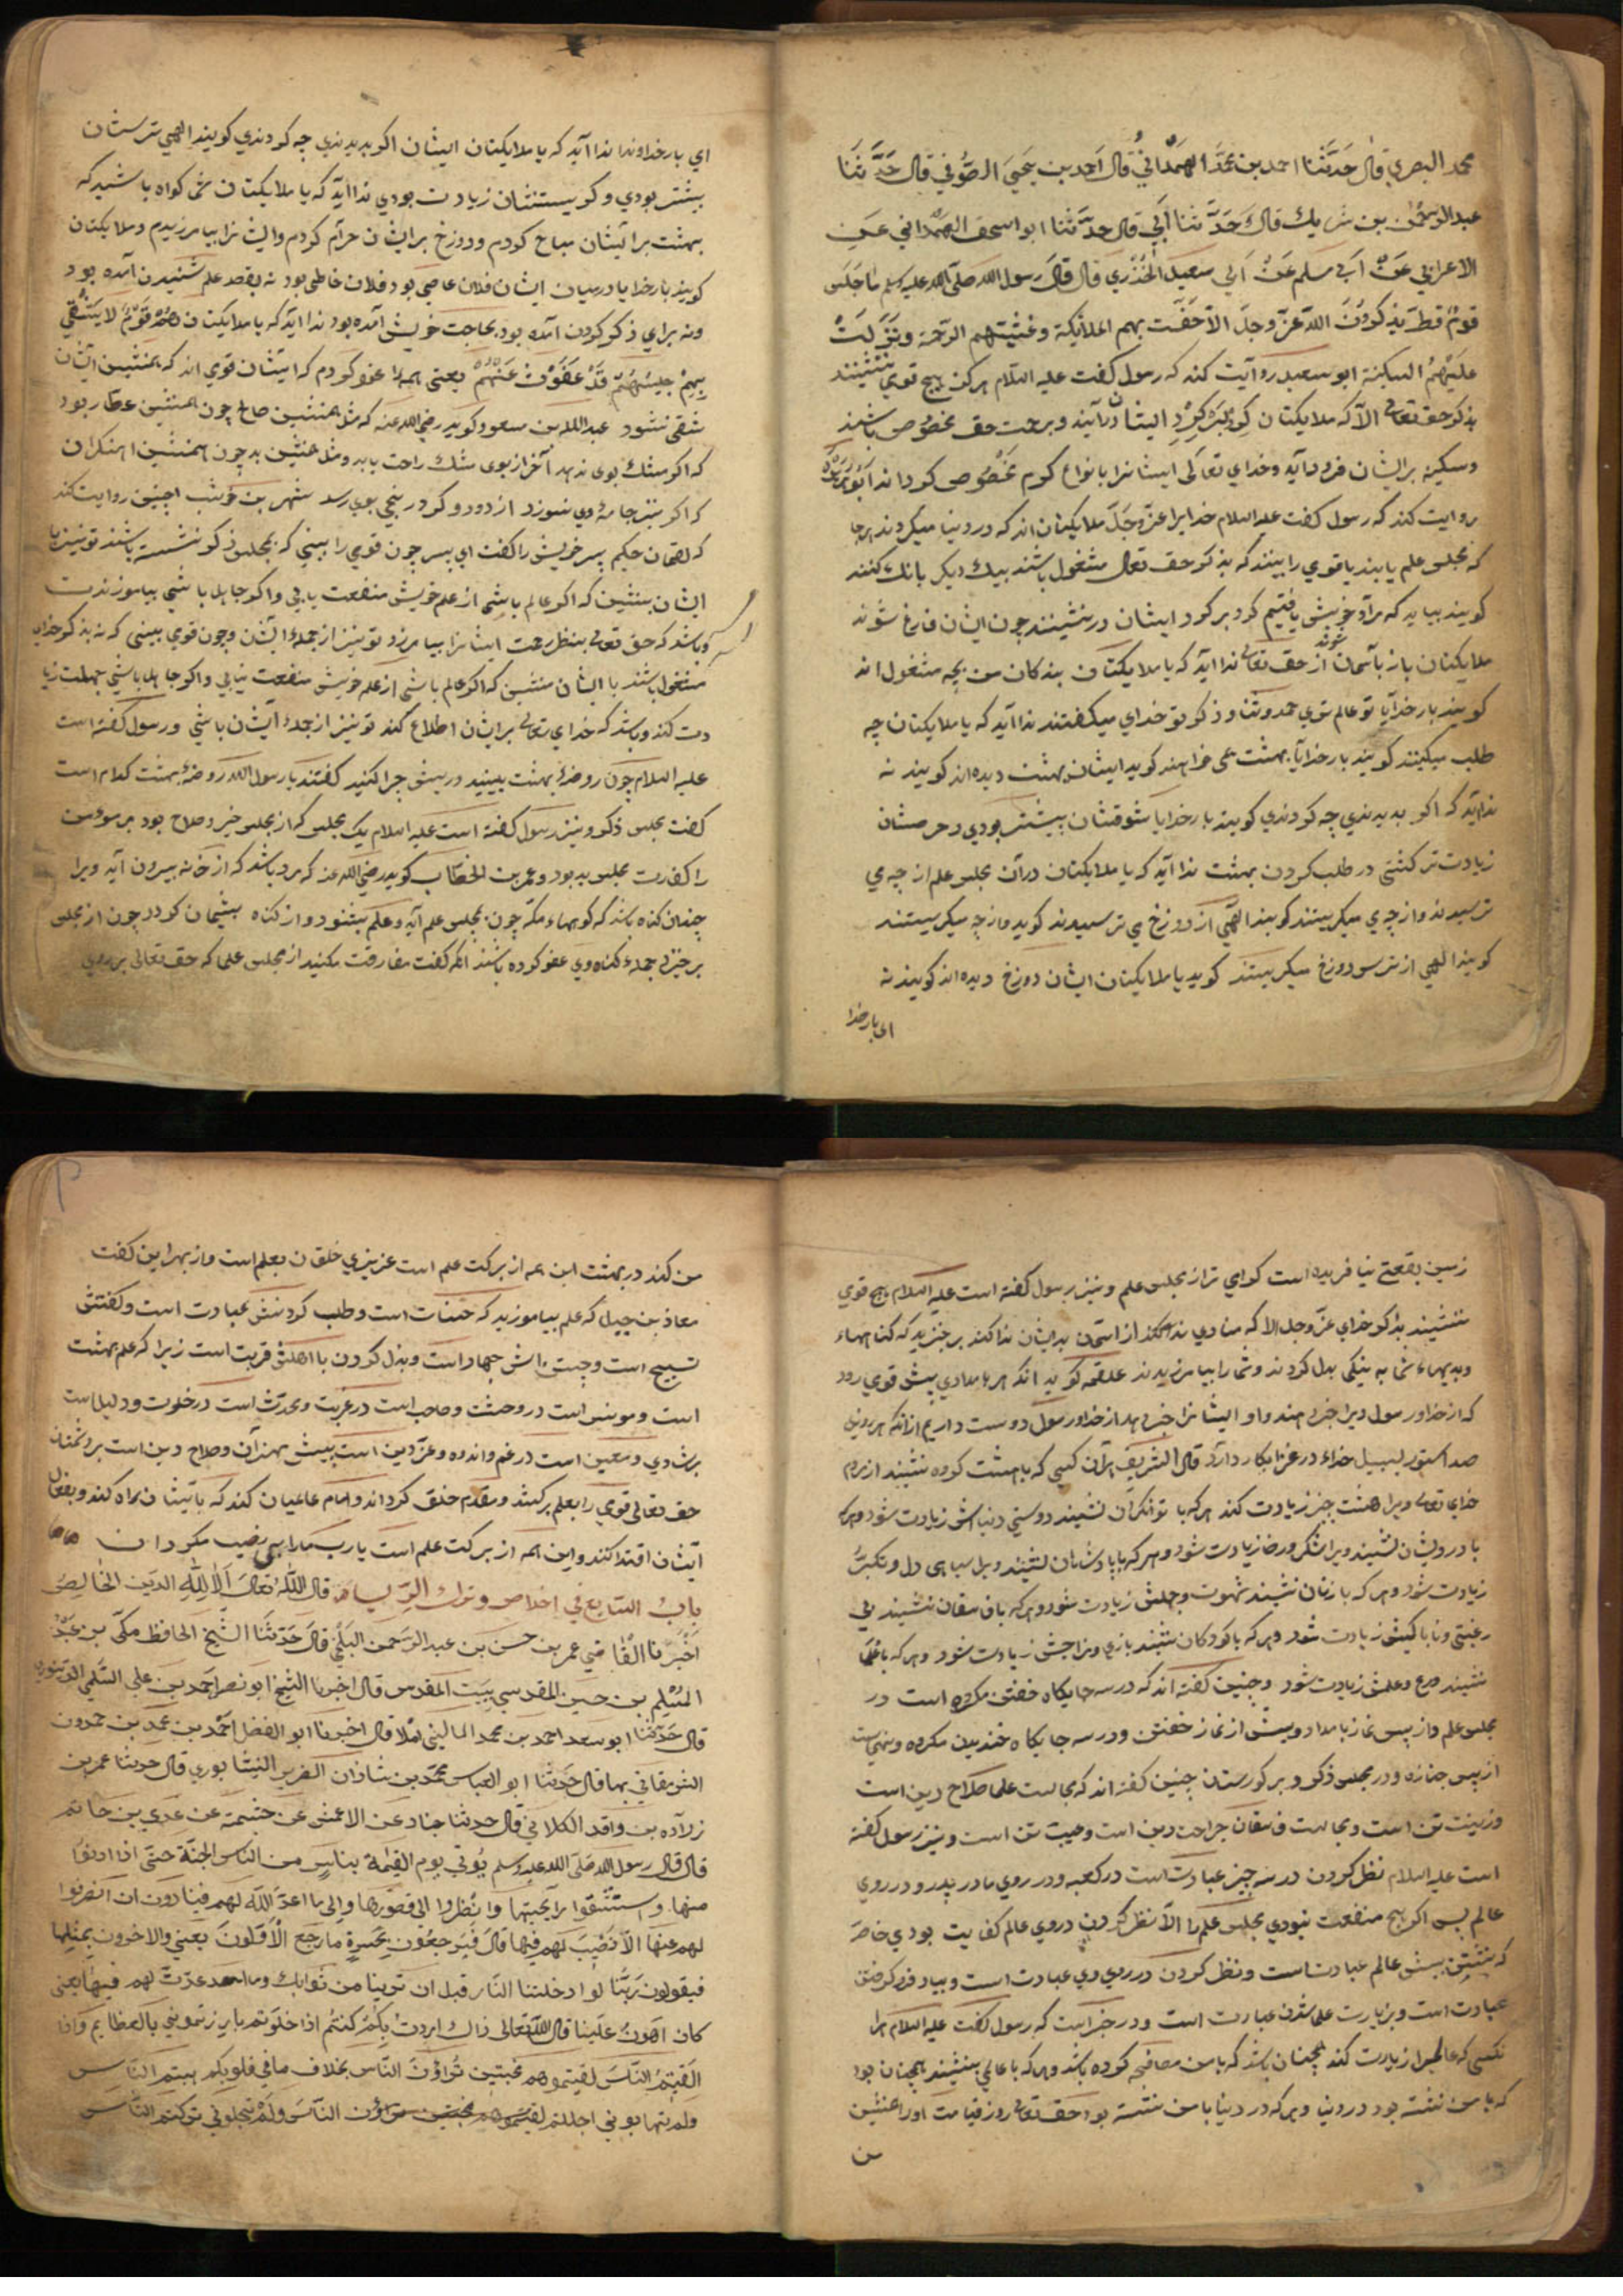 محمد البصري قال حَدَّثَنا احمد بن محمّد الهمدانيُّ قال احمد بن يحيى الصّوفي قال حَدَّثَنا
عبدالرحمن بن شريك قال حَدَّثنا اَبي قال حدَّثنا ابو اسحق الهمداني عَنِ
الاعرابي عَنْ اَبي مسلم عَنْ اَبي سعيد الخُدْري قال قال رسول الله صلّى الله عليه وسلم ما جَلَسَ
قومٌ قطّ يذكرونَ اللّهَ عَزَّ وجلَّ الاّ حَفَّت بهم الملائكة وغشيتهم الرّحمة ونَزَلَتْ
عليهمُ السكينة ابو سعيد روايت كند كه رسول كفت عليه السّلام هركز هيچ قومي ننشينند
بذكر حق تعالى الاّ كه ملايكتان كرد بر كرد ايشان درآيند وبرحمت حق مخصوص باشند
وسكينه بر ايشان فرود آيد وخداي تعالى ايشانرا بانواع كرم مخصوص كرداند ابو هريره
روايت كند كه رسول كفت عليه السلام خدايرا عزّ وجلّ ملايكتان اند كه در دنيا ميكردند هرجا
كه مجلس علم يابند يا قومي را بينند كه بذكر حق تعالى مشغول باشند بيك ديكر بانك كنند
كويند بيايد كه مراد خويش يافتيم كرد بر كرد ايشان درنشينند چون ايشان فارغ شوند
ملايكتان باز باسمان شوند از حق تعالى ندا آيد كه يا ملايكتان بندكان من بچه مشغول اند
كويند بار خدايا تو عالم تري حمد وثنا وذكر تو خداي ميكفتند ندا آيد كه يا ملايكتان چه
طلب ميكنند كويند بار خدايا بهشت مي خواهند كويد ايشان بهشت ديده اند كويند نه
ندا آيد كه اكر بديدندي چه كردندي كويند بار خدايا شوقشان بيشتر بودي وحرصشان
زيادت تر كشتي در طلب كردن بهشت ندا آيد كه يا ملايكتان در آن مجلس علم از چه مي
ترسيدند واز چه مي ميكريستند كويند الهي از دوزخ مي ترسيدند كويد واز چه ميكريستند
كويند الهي از ترس دوزخ ميكريستند كويد يا ملايكتان ايشان دوزخ ديده اند كويند نه
اي بار خدا
اي بار خداوندا ندا آيد كه يا ملايكتان ايشان اكر بديدندي چه كردندي كويند الهي ترسشان
بيشتر بودي وكريستنشان زيادت بودي ندا آيد كه يا ملايكتان شما كواه باشيد كه
بهشت بر ايشان مباح كردم ودوزخ بر ايشان حرام كردم وايشانرا بيامرزيدم وملايكتان
كويند بار خدايا در ميان ايشان فلان عاصي بود فلان خاطي بود نه بقصد علم شنيدن آمده بود
ونه براي ذكر كردن آمده بود بحاجت خويش آمده بود ندا آيد كه يا ملايكتان هُمْ قَوْمٌ لا يَشْقي
بِهِمْ جليسُهُمْ قَدْ عَفَوْتُ عَنْهُمْ يعني همه را عفو كردم كه ايشان قومي اند كه همنشين ايشان
شقي نشود عبدالله بن مسعود كويد رضي الله عنه كه مثل همنشين صالح چون همنشين عطّار بود
كه اكر مشك بوي ندهد آخر از بوي مشك راحت يابد ومثل همنشين بد چون همنشين اهنكران
كه اكر نيز جامهٔ وي نسوزد از دود وكرد رنجي بوي رسد شهر بن حوشب اچنين روايت كند
كه لقمان حكيم پسر خويش را كفت اي پسر چون قومي را بيني كه بمجلس ذكر نشسته باشند تو نيز با
ايشان بنشين كه اكر عالم باشي از علم خويش منفعت يابي واكر جاهل باشي بياموزندت
وباشد كه حق تعالى بنظر رحمت ايشانرا بيامرزد تو نيز از جملهٔ ايشان وچون قومي بيني كه نه بذكر خداي
مشغول باشند با ايشان منشين كه اكر عالم باشي از علم خويش منفعت نيابي واكر جاهل باشي جهلت زيا
دت كند وباشد كه خداي تعالى بر ايشان اطلاع كند تو نيز از جملهٔ ايشان باشي ورسول كفته است
عليه السلام چون روضهٔ بهشت ببينيد دريش چرا كنيد كفتند يا رسول الله روضهٔ بهشت كدام است
كفت مجلس ذكر ونيز رسول كفته است عليه السلام يك مجلس كه از مجلس خير وصلاح بود مر مومن
را كفارت مجلس بد بود وعمر بن الخطّاب كويد رضي الله عنه كه مرد باشد كه از خانه بيرون آيد ويرا
چندان كناه باشد كه كوهاء مكّه چون بمجلس علم آيد وعلم بشنود واز كناه پشيمان كردد چون از مجلس
برخيزد جملهٔ كناه وي عفو كرده باشند انكه كفت مفارقت مكنيد از مجلس علما كه حق تعالى بر روي
زمين بقعتي نيافريده است كرامي تر از مجلس علم ونيز رسول كفته است عليه السلام هيچ قومي
ننشيند بذكر خداي عزّ وجل الا كه منادي ندا كند از آسمان بديشان ندا كند برخيزيد كه كناهاء
وبديهاء شما به نيكي بدل كردند وشما را بيامرزيدند علقمه كويد انكه هر بامدادي پيش قومي رود
كه از خدا ورسول ويرا خبر دهند واو ايشانرا خبر دهد از خدا ورسول دوست دارم از انكه هر روز
صد استور لسبيل خداء در غزا بكار دارد قال الشريف بران كسي كه با هشت كروه نشيند از مردم
خداي تعالى ويرا هشت چيز زيادت كند هركه با توانكران نشيند دوستي دنياش زيادت شود وهركه
با درويشان نشيند ويرا شكر ورضا زيادت شود وهركه با پادشاهان نشيند ويرا سياهي دل وتكبّر
زيادت شود وهركه با زنان نشيند شهوت وجهلش زيادت شود وهركه با فاسقان نشيند بي
رغبتي وناباكيش زيادت شود وهركه با كودكان نشيند بازي ومزاحش زيادت شود وهركه با علما
نشيند ورع وعلمش زيادت شود وچنين كفته اند كه در سه جايكاه خفتن مكروه است در
مجلس علم واز پس نماز بامداد وپيش از نماز خفتن ودر سه جايكاه خنديدن مكروه ومنهي است
از پس جنازه ودر مجلس ذكر وبر كورستان چنين كفته اند كه مجالست علما صلاح دين است
وزينت تن است ومجالست فاسقان جراحت دين است وعيب تن است ونيز رسول كفته
است عليه السلام نظر كردن در سه چيز عبادت است در كعبه ودر روي مادر پدر ودر روي
عالم پس اكر هيچ منفعت نبودي مجلس علم را الا نظر كردن در روي عالم كفايت بودي خاصه
كه نشستن پيش عالم عبادت است ونظر كردن در روي وي عبادت است وبياد فرا كرفتن
عبادت است وبزيارت علما شدن عبادت است ودر خبر است كه رسول كفت عليه السلام هرا
نكسي كه عالميرا زيارت كند همچنان باشد كه با من مصافحه كرده باشد وهركه با عالمي بنشيند همچنان بود
كه با من نشسته بود در دنيا وهركه در دنيا با من نشسته بود حق تعالى روز قيامت او را همنشين
من
من كند در بهشت اين همه از بركت علم است عزيزي خلقان بعلم است واز بهر اين كفت
معاذ بن جبل كه علم بياموزيد كه حسنات است وطلب كردنش عبادت است وكفتنش
تسبيح است وجستنش جهاد است وبذل كردن با اهلش قربت است زيرا كه علم بهشت
است ومونس است در وحشت وصاحب است در غربت ومحدّث است در خلوت ودليل است
برشادي ومعين است در غم واندوه وعزّ دين است پيش بهتران وصلاح دين است بر دشمنان
حق تعالى قومي را بعلم بركشد ومقدم خلق كرداند وامام عاصيان كند كه بايشان راه كند وبفعال
ايشان اقتدا كنند واين همه از بركت علم است يارب ما را بي نصيب مكردان
بابُ السّابع في اخلاص وترك الرّياء قال اللّه تعالى اَلا لِلّهِ الدين الخالِصُ
اَخْبَرنا القاضي عمر بن حسن بن عبدالرحمن البلخي قال حَدَّثنا الشيخ الحافظ مكّي بن عبد
المُسْلِم بن حسين المقدسي ببيت المقدس قال اخبرنا الشيخ ابو نصر احمد بن علي السّلمي الدّينوري
قال حَدَّثنا ابو سعد احمد بن محمد الماليني املا قال اخبرنا ابو الفضل احمد بن محمد بن حمدون
الشرمقاني بها قال حَدَّثنا ابو العباس محمّد بن شاذان الضرير النيشابوري قال حدثنا عمر بن
زراده بن واقد الكلابي قال حدثنا جناد عن الاعمش عن خثيمة عن عدي بن حاتم
قال قال رسول الله صلّى الله عليه وسلم يُوتي يوم القيٰمة بناسٍ من النّاس الجنّة حتّى اذا ادنوا
منها واستنشقوا رآيحتها وانظروا الى قصورها والى ما اعدّ اللّه لهم فينادون ان اصرفوا
لهم عنها لا نَصيبَ لهم فيها قال فيرجعون بحسرةٍ ما رجع الاَوّلون يعني والاخرون بمثلها
فيقولون ربّنا لو ادخلتنا النّار قبل ان ترينا من ثوابك وما اعددت لهم فيها يعني
كان اهونُ علينا قال اللّه تعالى ذاك اردت بكُمْ كنتُم اذا خلوتم بارزتموني بالعظايم واذا
القيتمُ النّاسَ لقيتموهم مخبتين تُراؤن النّاس بخلاف ما في قلوبكم هبتم النّاس
ولم تهابوني اجللتم لقيتموهم مخبتين تراؤن النّاس ولَمْ تجلوني تركتم النّاس